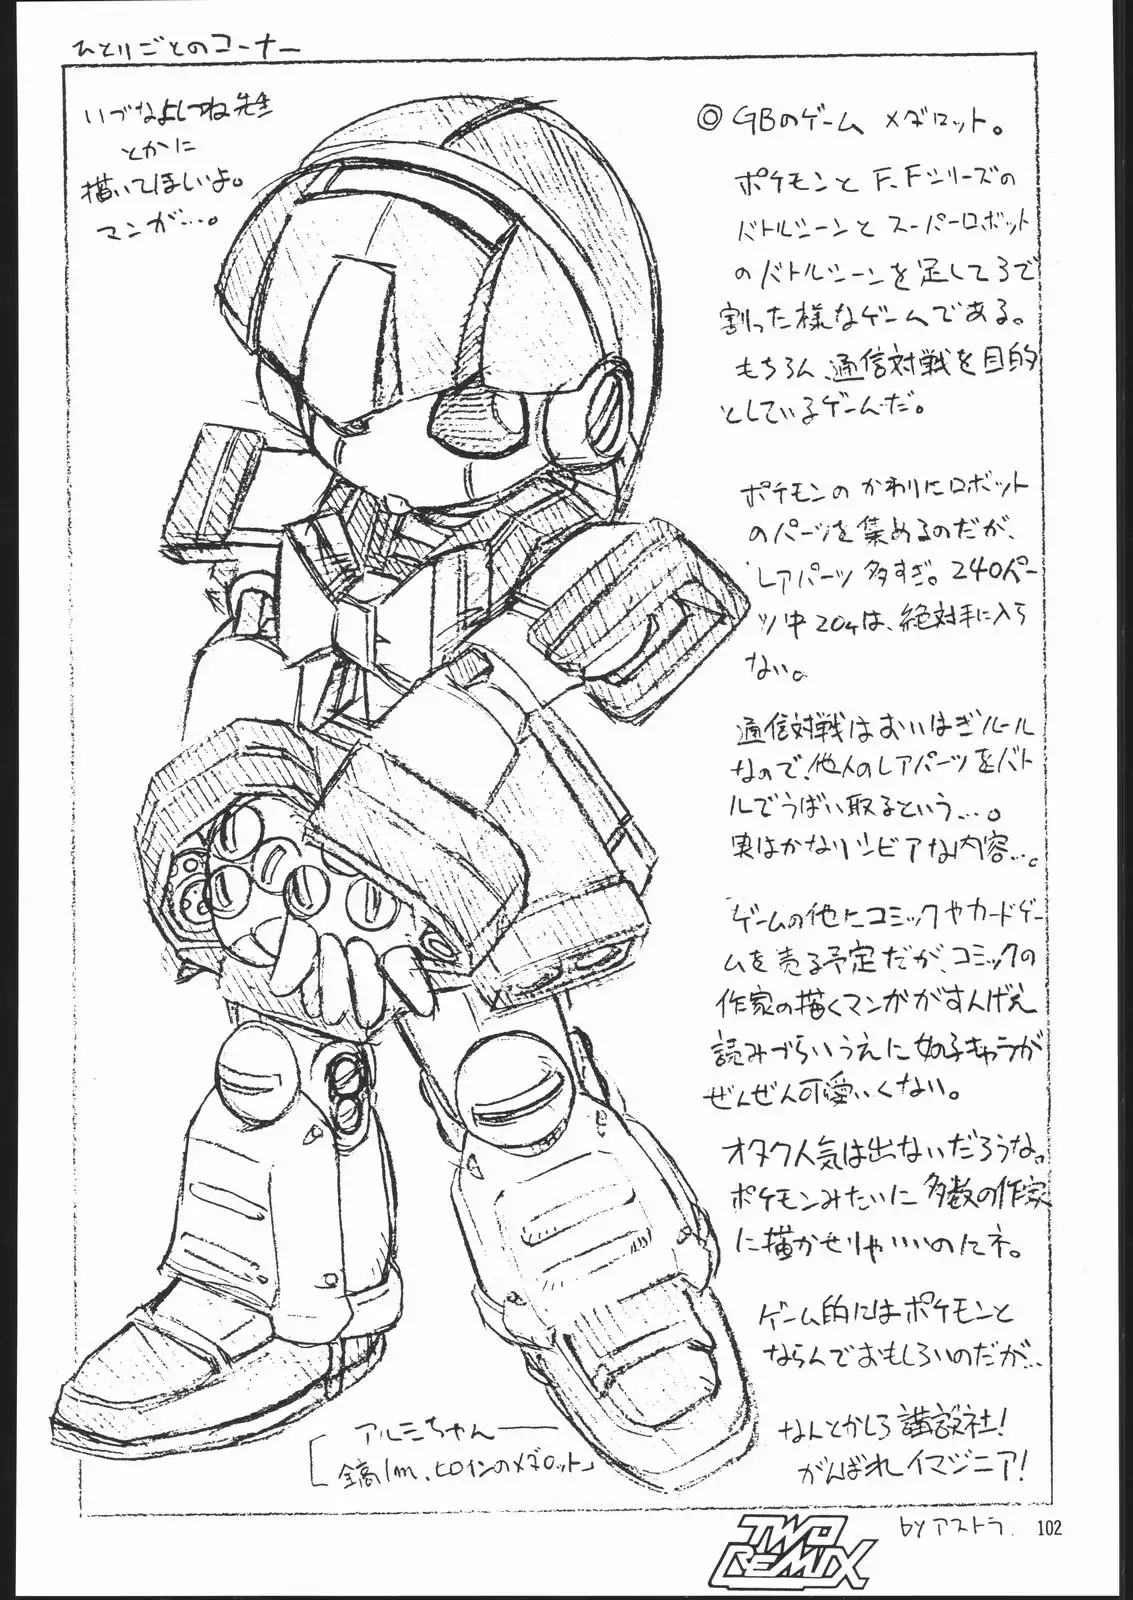 ひとりごとのコーナー
いづなよしつね先生
とかに
描いてほしいよ。
マンガ…。
◎ GBのゲーム メダロット。
ポケモンと F.Fシリーズの
バトルシーンと スーパーロボット
のバトルシーンを足して3で
割った様なゲームである。
もちろん、通信対戦を目的
としているゲームだ。
ポケモンの かわりにロボット
のパーツを集めるのだが、
レアパーツ多すぎ。240パー
ツ中204は、絶対手に入ら
ない。
通信対戦はおいはぎルール
なので、他人のレアパーツをバト
ルでうばい取るという…。
実はかなりシビアな内容…。
ゲームの他にコミックやカードゲー
ムを売る予定だが、コミックの
作家の描くマンガがすんげえ
読みづらいうえに女の子キャラが
ぜんぜん可愛いくない。
オタク人気は出ないだろうな。
ポケモンみたいに多数の作家
に描かせりゃいいのにネ。
ゲーム的にはポケモンと
ならんでおもしろいのだが…
なんとかしろ講談社!
がんばれイマジニア!
アルミちゃん
「全高1m、ヒロインのメダロット」
by アストラ.
102
TWO
REMIX